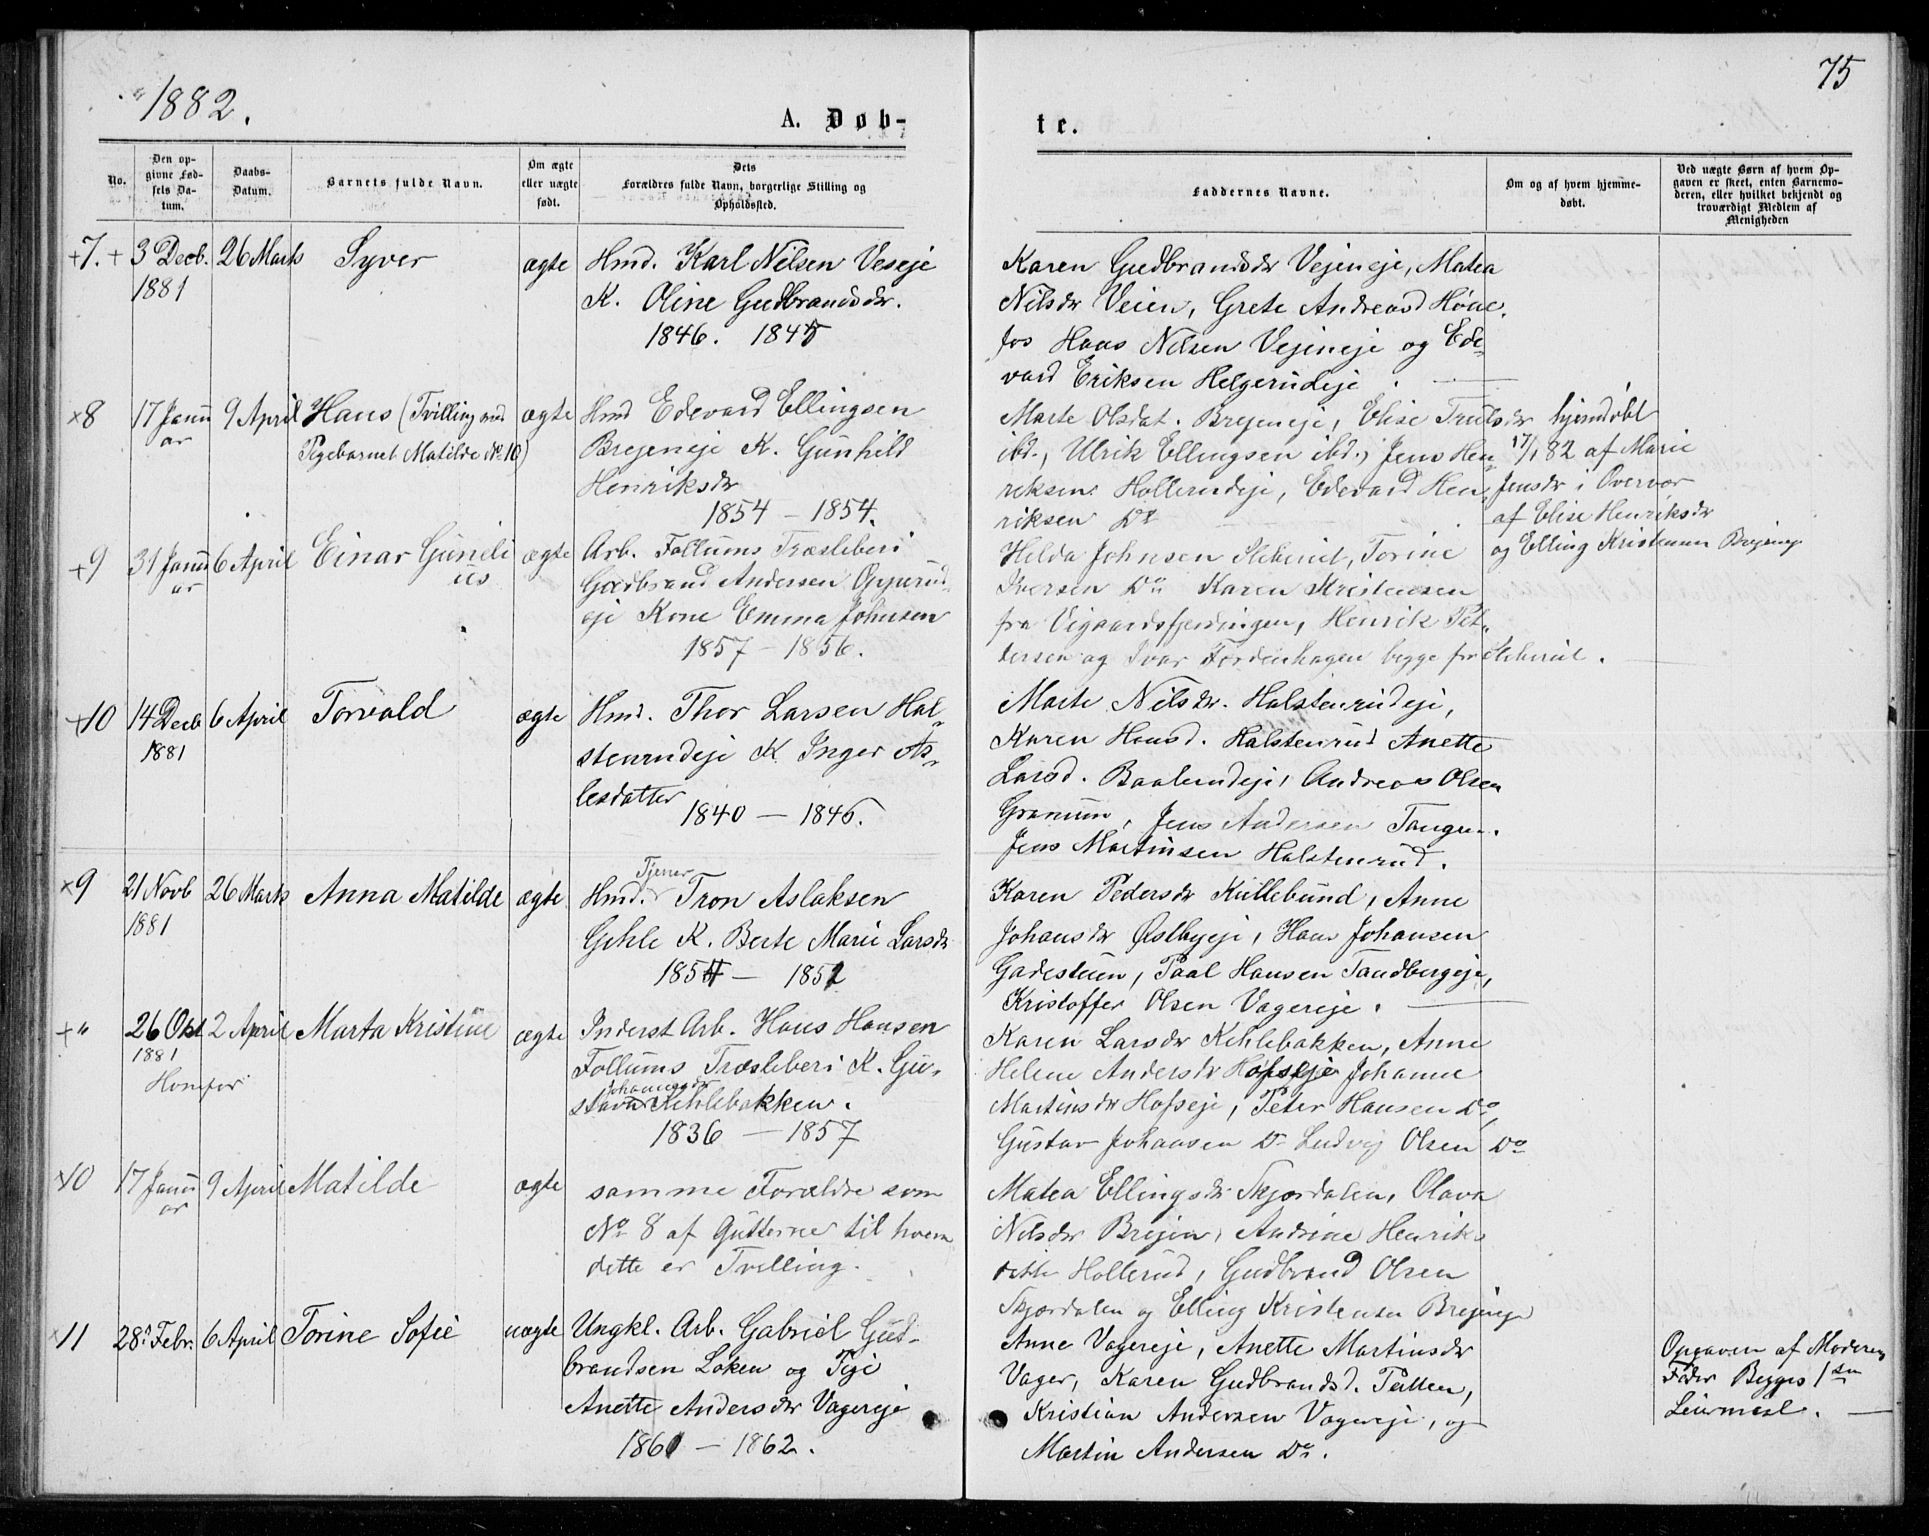 1882.
75
A. Døb-
te.
No.
Den op-
givne Fød-
sels Da-
tum.
Daabs-
Datum.
Barnets fulde Navn.
Om ægte
eller uægte
født.
Dets
Forældres fulde Navn, borgerlige Stilling og
Opholdssted.
Faddernes Navne.
Om og af hvem hjemme-
døbt.
Ved uægte Børn af hvem Op-
gaven er skeet, enten Barnemo-
deren, eller hvilket bekjendt og
troværdigt Medlem af
Menigheden
+7. + 3 Decb. 26 Marts Syver ægte Hmd. Karl Nielsen Veseje
1881
K. Oline Gudbrandsdr.
1846. 1845
Karen Gudbrandsdr Vejeneje, Matea
Nilsdr Veien, Grete Andreasd Høne,
fos Hans Nelsen Vejeneje og Ede,
vard Eriksen Helgerudeje
×8 17 Janu 9 April Hans (Tvilling med ægte Hmd Edevard Ellingsen
ar
Pigebarnet Matilde No 10)
Brejeneje K. Gunhild
Henriksdr
1854 - 1854.
Marte Olsdat. Brejeneje, Elise Trulsdr
ibd., Ulrik Ellingsen ibd., Jens Hen
riksen Hollerudeje, Edevard Hen
riksen Do
hjemdøbt
17/1 82 af Marie
Jensdr i Overvær
af Elise Henriksdr
og Elling Kristensen Brejeneje
+9 31 Janu 6 April Einar Guneli ægte
ar
us
Arb. Follums Træsleberi
Gudbrand Andersen Opperud,
eje Kone Emma Johnsen
1857 - 1856.
Helda Johnsen, Torine
Iversen Do Karen Kristensen
fra Vigaardsfjerdingen, Henrik Pet,
tersen og Ivar Fordenhagen begge fra
+10 14 Decb 6 April Torvald ægte Hmd. Thor Larsen Hal,
1881
stenrudeje K. Inger As,
lesdatter
1840 - 1846.
Marte Nelsdr. Halstenrudeje,
Karen Hansd. Halstenrud Anette
Larsd. Baalerudeje, Andreas Olsen
Granum, Jens Andersen Tangen.
Jens Martinsen Halstenrud.
×9 21 Novb 26 Marts Anna Matilde ægte
1881
Tjener
Hmd. Tron Aslaksen
Gehle K. Berte Marie Larsdr
1854 - 1851
Karen Pedersdr Kullebund, Anne
Johansdr Østbyeje, Hans Johansen
Gadesteien, Paal Hansen Tandbergeje,
Kristoffer Olsen Vagereje.
+" 26 Okt 2 April Marta Kristine ægte
1881
Inderst Arb. Hans Hansen
Follums Træsleberi K. Gu,
Johannesdr
stava Kehlebakken.
1836 - 1857
Karen Larsdr Kehlebakken, Anne
Helene Andersdr Hofseje Johanne
Martinsdr Hofseje, Peter Hansen Do,
Gustav Johansen Do Ludvig Olsen Do
×10 17 Janu 9 April Matilde ægte
ar
samme Forældre som
No 8 af Gutterne til hvem
dette er Tvilling.
Matea Ellingsdr Skjerdalen, Olava
Nelsdr Brejen, Andrine Henriks
datter Hollerud, Gudbrand Olsen
Skjerdalen og Elling Kristensen Brejeneje
×11 28. Febr. 6 April Torine Sofie uægte
Ungkl. Arb. Gabriel Gud-
brandsen Løken og Pige
Anette Andersdr Vagereje
1861 - 1862.
Anne Vagereje, Anette Martinsdr
Vager, Karen Gudbrandsd. Pætten,
Kristian Andersen Vagereje, og
Martin Andersen Do.
Opgaven af Moderens
Fader Begges 1ste
Leiermaal.